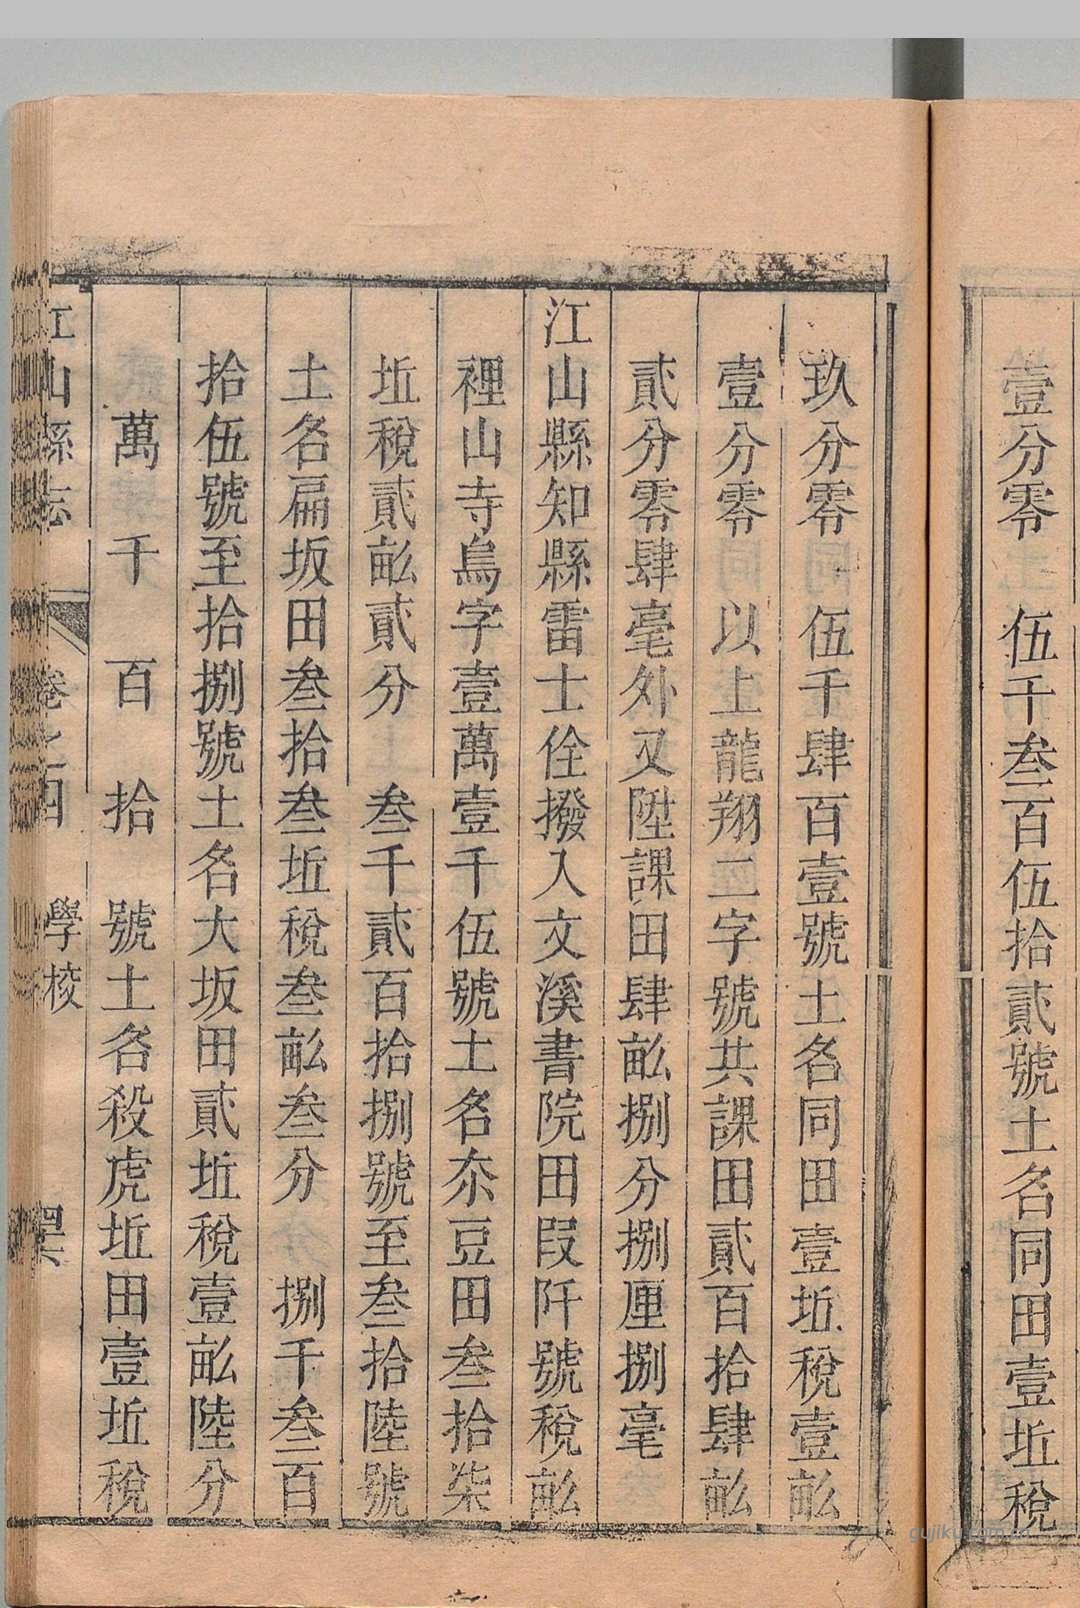 壹分零　伍千叁百伍拾貳號土名同田壹坵稅
玖分零　伍千肆百壹號土名同田壹坵稅壹畝
壹分零　以上龍翔二字號共課田貳百拾肆畝
貳分零肆毫外又陞課田肆畝捌分捌厘捌毫
江山縣知縣雷士佺撥入文溪書院田叚阡號稅畝
裡山寺鳥字壹萬壹千伍號土名尒豆田叁拾柒
坵稅貳畝貳分　叁千貳百拾捌號至叁拾陸號
土名扁坂田叁拾叁坵稅叁畝叁分　捌千叁百
拾伍號至拾捌號土名大坂田貳坵稅壹畝陸分
萬　千　百　拾　號土名殺虎坵田壹坵稅
江山縣志　卷之四　學校
gujiku.com.cn